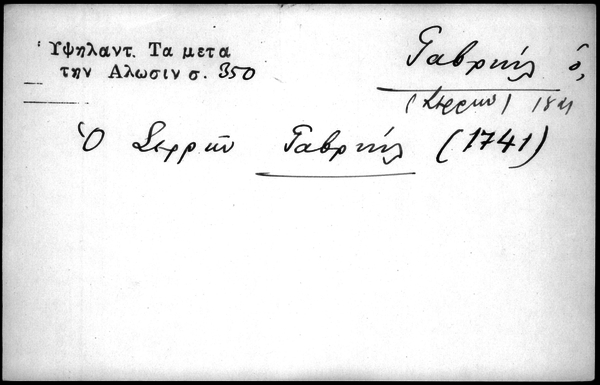 Ὑψηλαντ. Τα μετα
την Αλωσιν σ. 350
Γαβριήλ ὁ,
(Σερρῶν)
Ὁ Σερρῶν Γαβριήλ (1741)